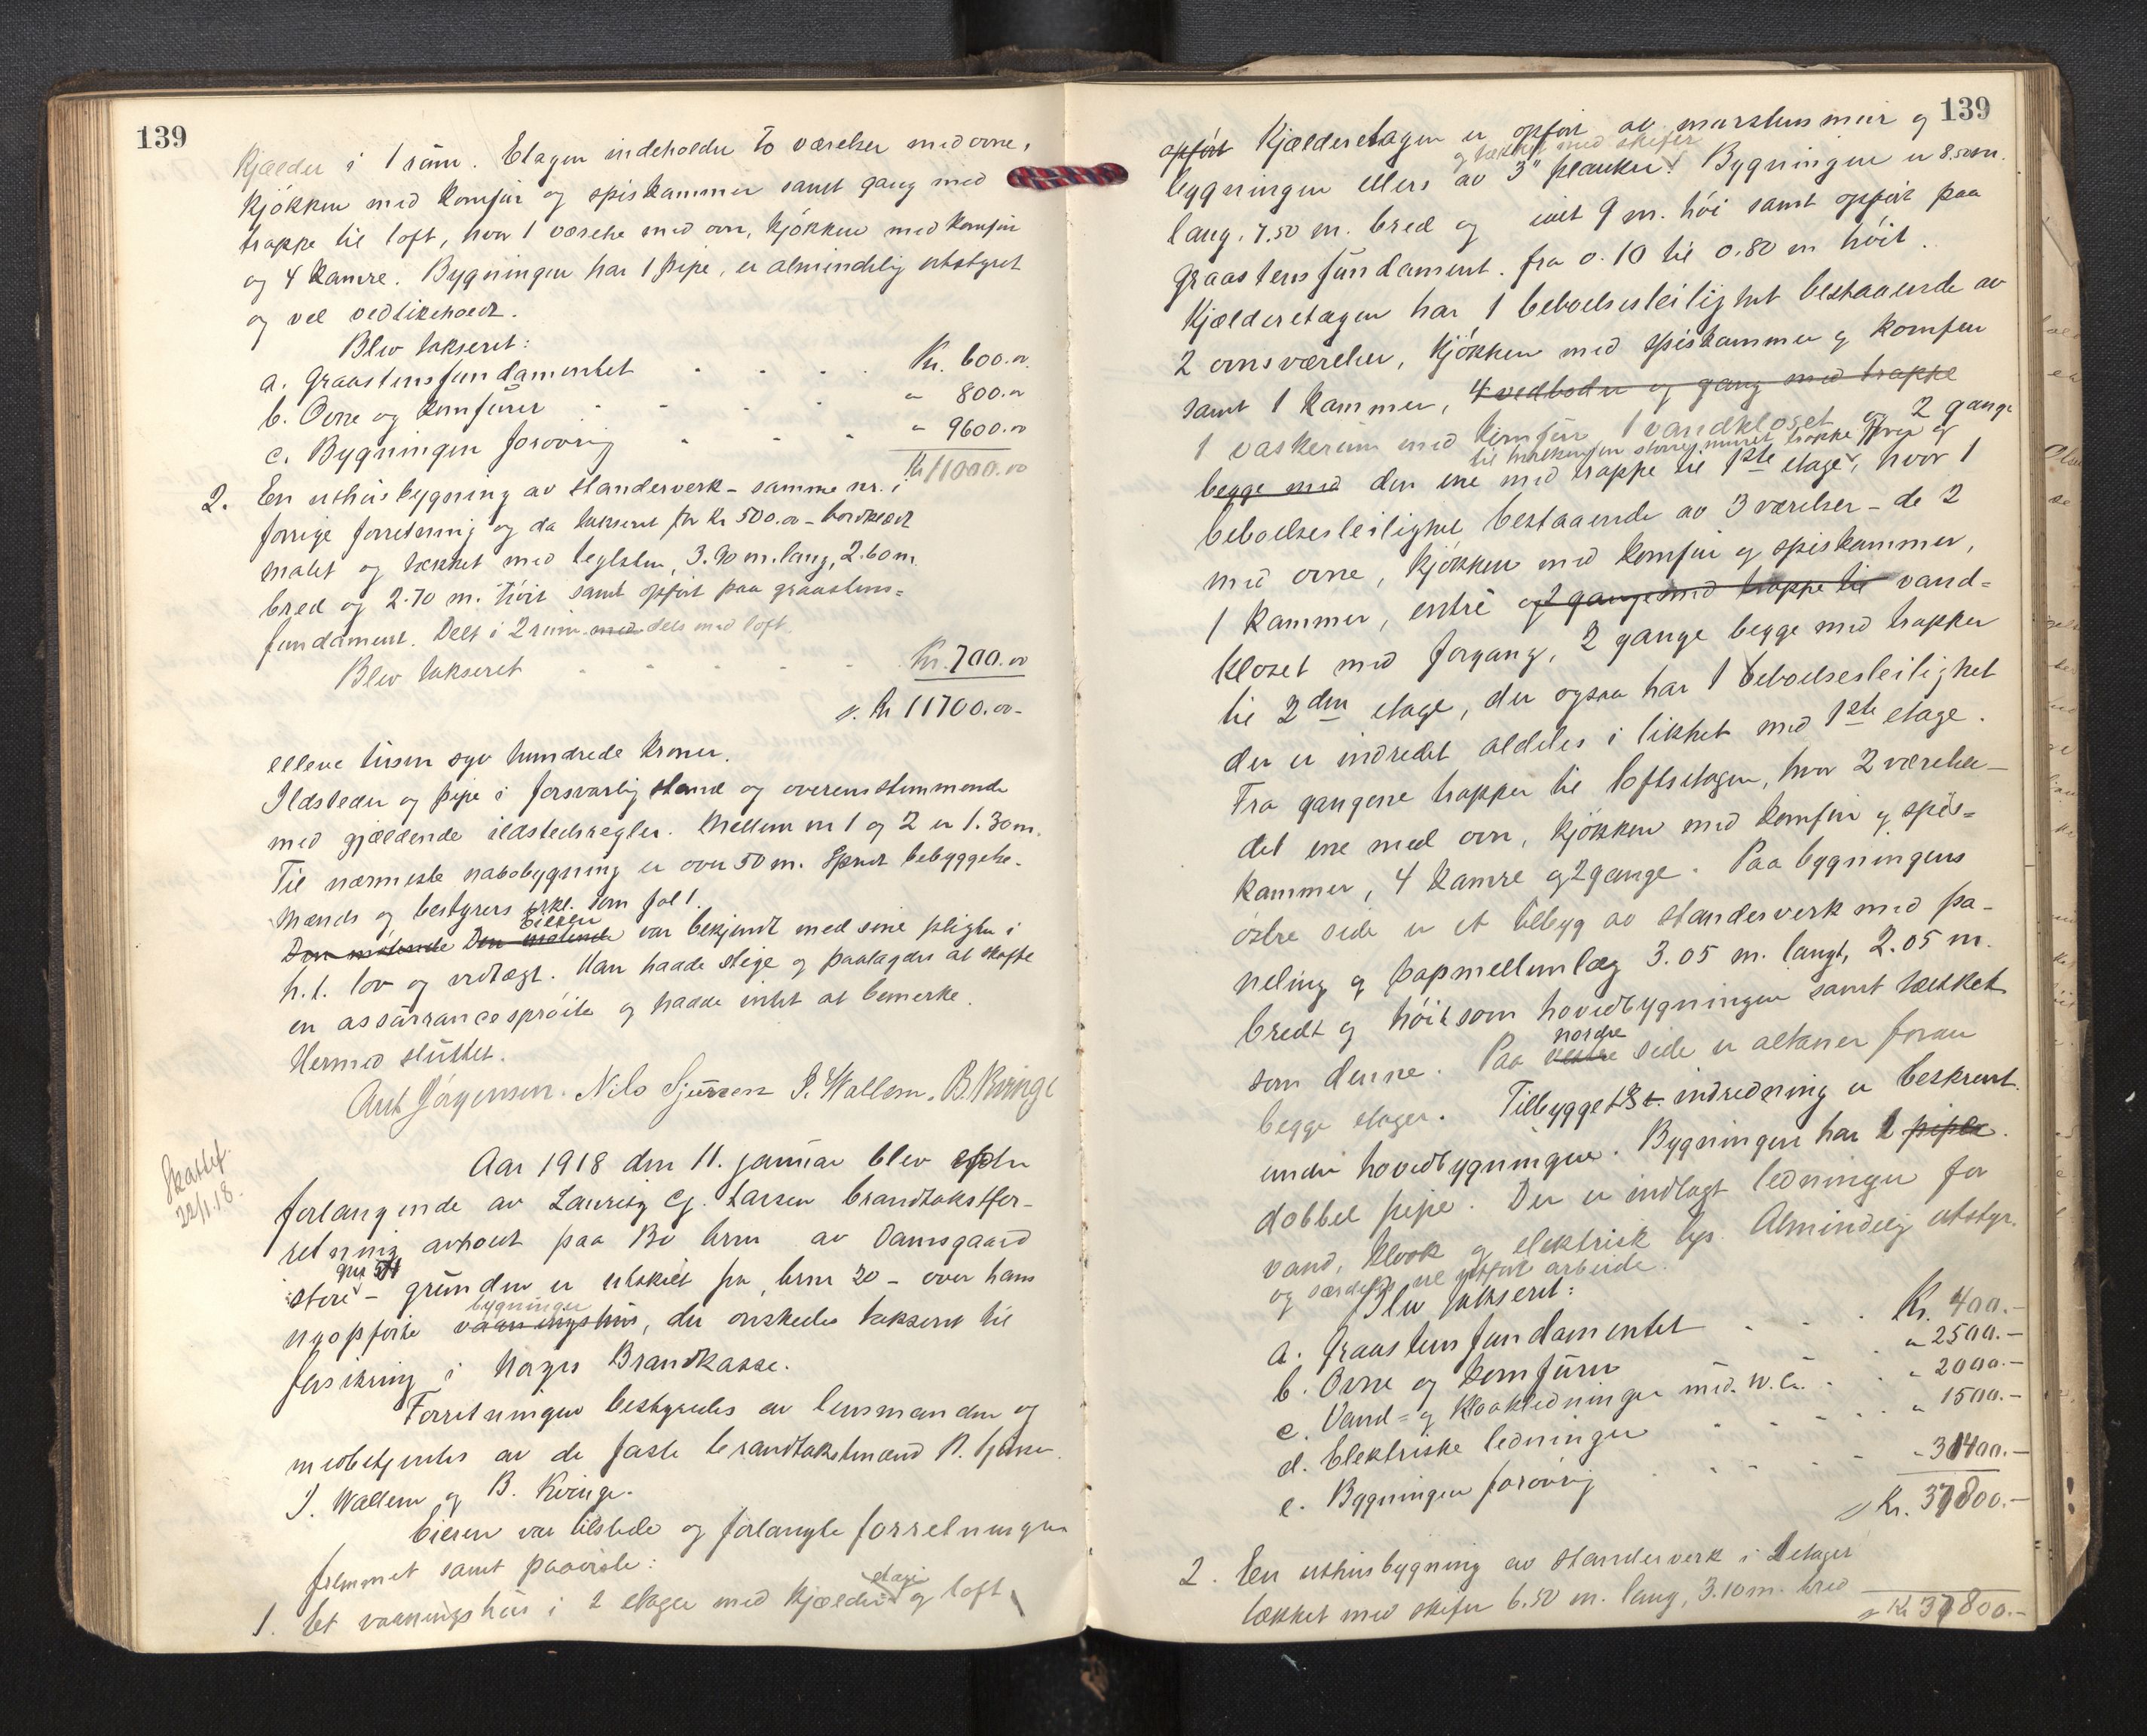 139
Kjælder i 1 rum. Etagen indeholder to værelser med ovne,
kjøkken med komfur og spiskammer samt gang med
trappe til loft, hvor 1 værelse med ovn, kjøkken med komfur
og 4 kamre. Bygningen har 1 pipe, er almindelig utstyret
og vel vedlikeholdt.
Blev takseret:
a. Graastensfundamentet . . . . Kr. 600.00
b. Ovne og komfurer . . . . " 800.00
c. Bygningen forøvrig . . . " 9600.00
Kr 11000.00
2. En uthusbygning av standerverk - samme nr. i
forrige forretning og da takseret for kr 500.00 - bordklædt
malet og tækket med teglsten, 3.90 m. lang, 2.60 m.
bred og 2.70 m. høi samt opført paa graastens-
fundament. Delt i 2 rum med dels med loft.
Blev takseret . . . . Kr. 700.00
s. Kr 11700.00-
elleve tusen syv hundrede kroner.
Ildsteder og pipe i forsvarlig stand og overensstemmende
med gjældende ildstedsregler. Mellem nr 1 og 2 er 1.30 m.
Til nærmeste nabobygning er over 50 m. Spredt bebyggelse.
Mænds og bestyrers erkl. som fol 1.
Eieren
Den møtende Den møtende var bekjendt med sine pligter i
h.t. lov og vedtægt. Han hadde stige og paalagdes at skaffe
en assuransesprøite og hadde intet at bemerke.
Hermed sluttet.
Ant Jørgensen. Nils Sjursen J. Wallem. B. Kvinge
Skattef.
22/1.18.
Aar 1918 den 11. januar blev efter
forlangende av Lauritz Cg. Larsen brandtakstfor-
retning avholdt paa Bo brnr av Damsgaard
gnr 54
store - grunden er utskilt fra brnr 20 - over hans
bygninger
nyopførte vaaningshus, der ønskedes takseret til
forsikring i Norges Brandkasse.
Forretningen bestyredes av lensmanden og
medbetjentes av de faste brandtakstmænd N. Sjursen
J. Wallem og B. Kvinge.
Eieren var tilstede og forlangte forretningen
fremmet samt paaviste:
etage
1. Et vaaningshus i 2 etager med kjælder og loft
139
opført Kjælderetagen er opført av murstensmur og
og tækket med skifer
bygningen ellers av 3" planker. Bygningen er 8.50 m.
lang, 7.50 m. bred og 9 m. høi samt opført paa
graastensfundament. fra 0.10 til 0.80 m høit.
Kjælderetagen har 1 beboelsesleilighet bestaaende av
2 ovnsværelser, kjøkken med spiskammer og komfur
samt 1 kammer, 4 vedboder og gang med trappe
1 vaskerum med komfur 1 vandkloset og 2 gange
til muret trappe og
begge med den ene med trappe til 1ste etage, hvor 1
beboelsesleilighet bestaaende av 3 værelser - de 2
med ovne, kjøkken med komfur og spiskammer,
1 kammer, entré og 2 gange med trappe til vand-
kloset med forgang, 2 gange begge med trapper
til 2den etage, der ogsaa har 1 beboelsesleilighet
der er indredet aldeles i likhet med 1ste etage.
Fra gangene trapper til loftsetagen, hvor 2 værelser -
det ene med ovn, kjøkken med komfur og spis-
kammer, 4 kamre og 2 gange. Paa bygningens
østre side er et tilbygg av standerverk med pa-
neling og papmellemlæg 3.05 m. langt, 2.05 m.
bredt og høit som hovedbygningen samt tækket
nordre
som denne. Paa vestre side er altaner foran
begge etager. Tilbyggets indredning er beskrevet
under hovedbygningen. Bygningen har 1 piper.
dobbel pipe. Der er indlagt ledninger for
vand, kloak og elektrisk lys. Almindelig utstyr.
og særdeles vel utført arbeide.
Blev takseret:
a. Graastensfundamentet . . . Kr. 400.-
b. Ovne og komfurer . " 2500.-
c. Vand- og kloakledninger med. w.c. . . " 2000.-
d. Elektriske ledninger . . . . " 1500.-
e. Bygningen forøvrig . . . . " 31400.-
s Kr. 37800.-
2. En uthusbygning av standerverk i 2 etager
tækket med skifer 6.50 m. lang, 3.10 m. bred
s Kr 37800.-